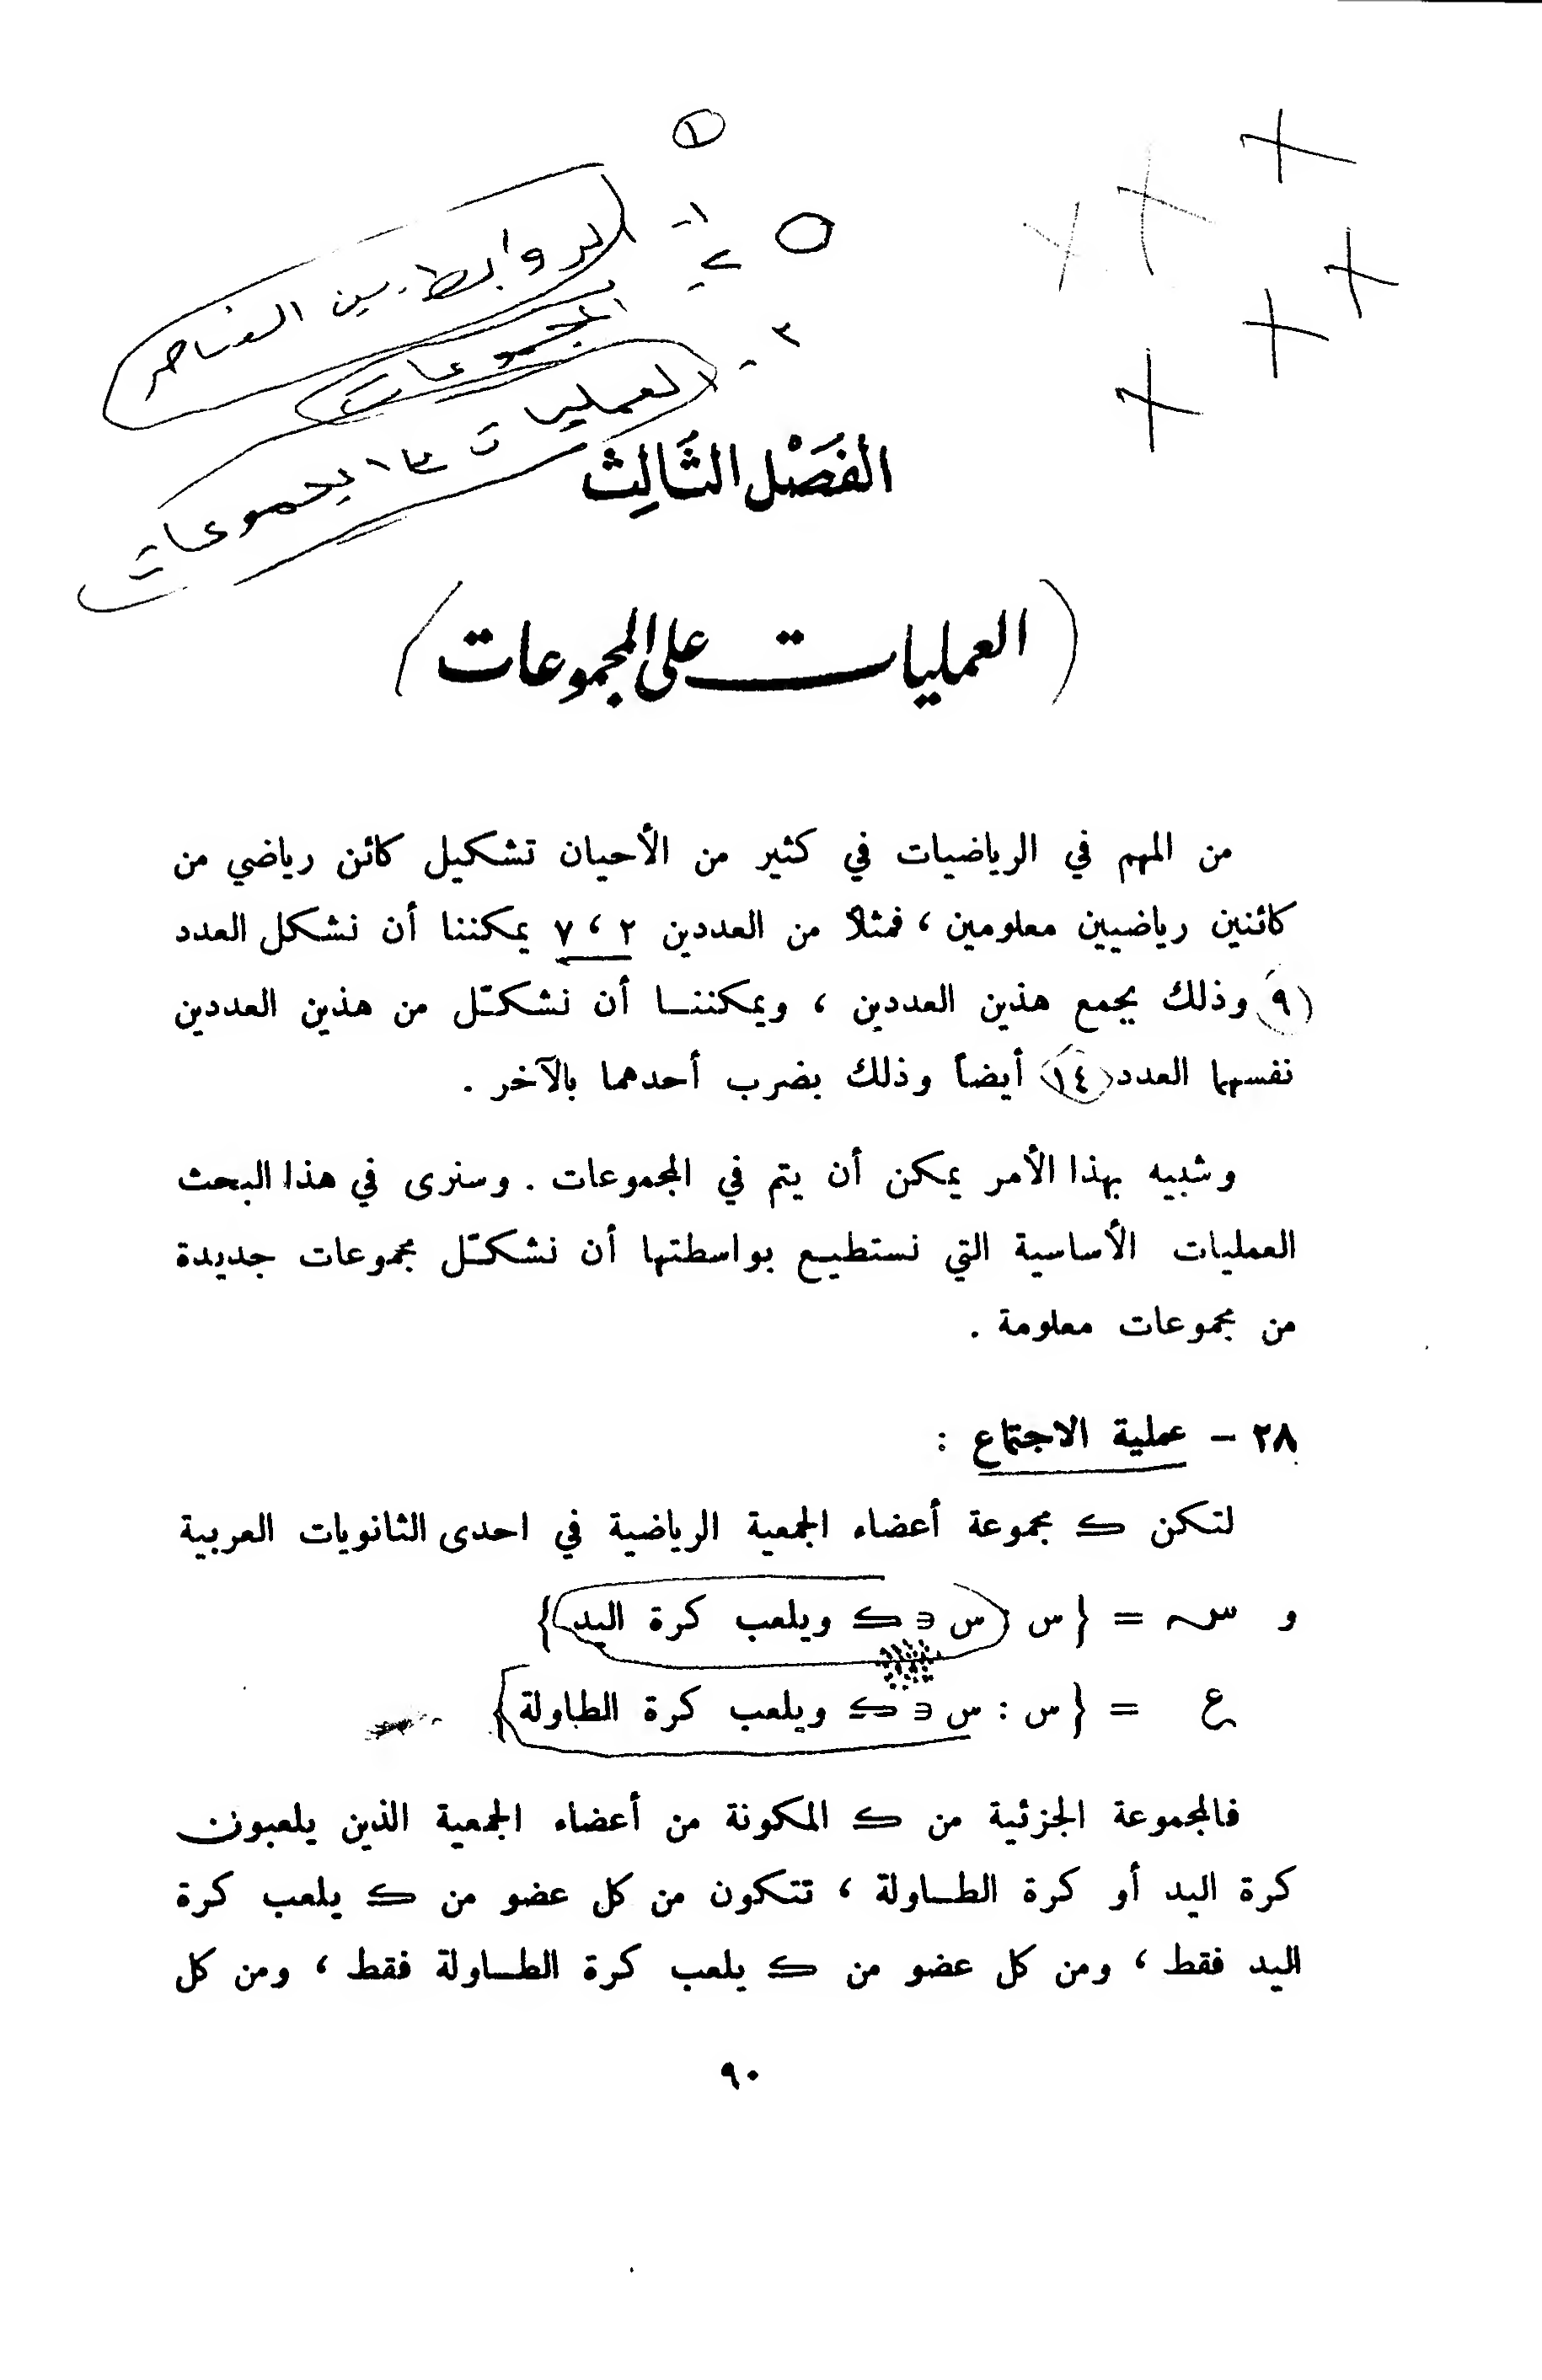 ①
١- الروابط بين العناصر
٢- المجموعات
٣- العمليات على المجموعات
الفَصْل الثَّالِث
(العمليات على المجموعات)
من المهم في الرياضيات في كثير من الأحيان تشكيل كائن رياضي من
كائنين رياضيين معلومين ، فمثلاً من العددين ٢ ، ٧ يمكننا أن نشكل العدد
(٩) وذلك بجمع هذين العددين ، ويمكننا أن نشكّل من هذين العددين
نفسهما العدد (١٤) أيضاً وذلك بضرب أحدهما بالآخر .
وشبيه بهذا الأمر يمكن أن يتم في المجموعات . وسنرى في هذا البحث
العمليات الأساسية التي نستطيع بواسطتها أن نشكّل مجموعات جديدة
من مجموعات معلومة .
٢٨ – عملية الاجتماع :
لتكن ك مجموعة أعضاء الجمعية الرياضية في احدى الثانويات العربية
و سـ = {س : س ∋ ك ويلعب كرة اليد}
ع = {س : س ∋ ك ويلعب كرة الطاولة}
فالمجموعة الجزئية من ك المكونة من أعضاء الجمعية الذين يلعبون
كرة اليد أو كرة الطاولة ، تتكون من كل عضو من ك يلعب كرة
اليد فقط ، ومن كل عضو من ك يلعب كرة الطاولة فقط ، ومن كل
٩٠